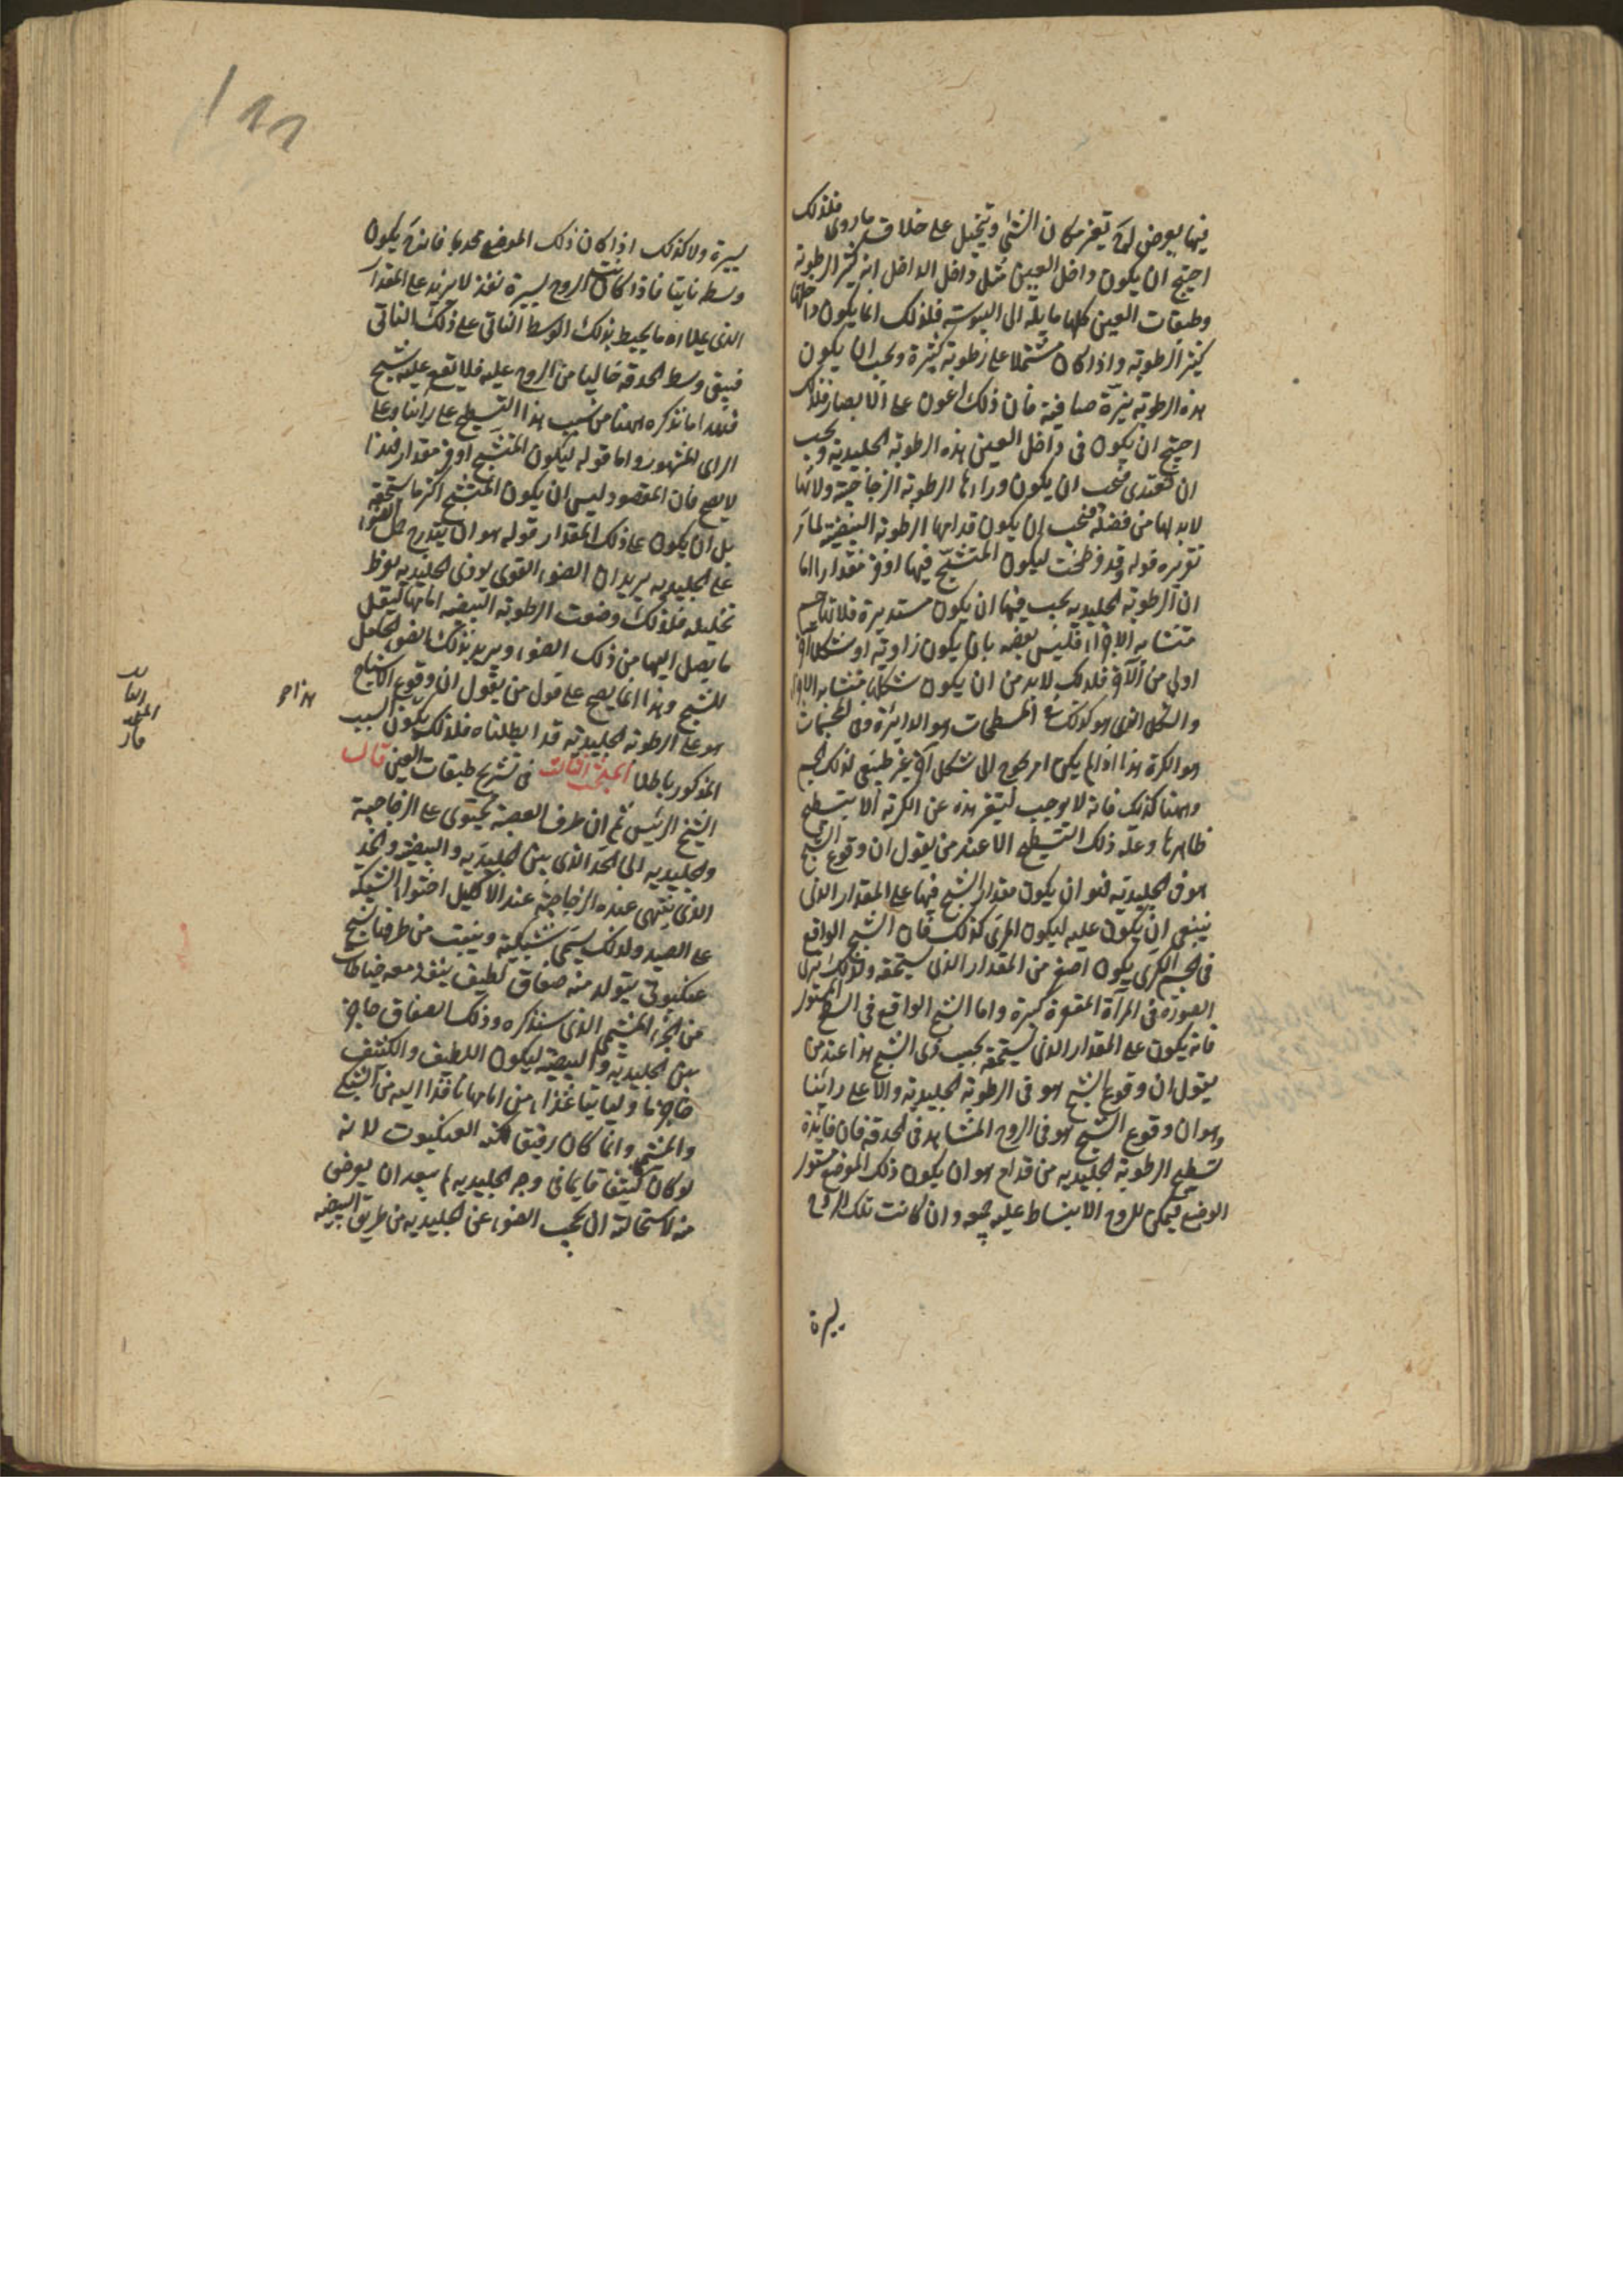 فيها يعرض لها تغير مكان الشئ وتخيل على خلاف ما دوى فلذلك
احتيج ان يكون داخل العين مثل داخل الداخل انه كثير الرطوبة
وطبقات العين كلها مايلة الى اليبوسة فلذلك انما يكون داخلها
كثير الرطوبة واذا كان مشتملا على رطوبة كثيرة ويجب ان يكون
هذه الرطوبة نيرة صافية فان ذلك اعون على الابصار فلذلك
احتيج ان يكون فى داخل العين هذه الرطوبة الجليدية ويجب
ان تغتدى فيجب ان يكون وراءها الرطوبة الزجاجية ولانها
لابد لها من فضلة فيجب ان يكون قدامها الرطوبة البيضية لما مر
تقريره قوله وقد فرطحت ليكون المتشبح فيها اوفر مقدارا اما
ان الرطوبة الجليدية يجب فيها ان يكون مستديرة فلانها جسم
متشابه الاجزاء فليس بعضه بان يكون زاوية او شكلا اخر
اولى من الآخر فلذلك لابد من ان يكون شكلها متشابه الاجزاء
والشكل الذى هو كذلك فى المسطحات هو الدائرة وفى المجسمات
هو الكرة هذا اذا لم يكن امر يحوج الى شكل اخر غير طبيعى لذلك الجسم
وههنا كذلك فانه لا موجب لتغير هذه عن الكرية الا يتسطح
ظاهرها وعلة ذلك التسطيح الا عند من يقول ان وقوع الشبح
هو فى الجليدية فهو ان يكون مقدار الشبح فيها على المقدار الذى
ينبغى ان يكون عليه ليكون المرئى كذلك فان الشبح الواقع
فى الجسم الكرى يكون اصغر من المقدار الذى يستحقه ولذلك يرى
الصورة فى المرآة المقعرة كبيرة واما الشبح الواقع فى السطح المستوى
فانه يكون على المقدار الذى يستحقه بحسب ذى الشبح هذا عند من
يقول ان وقوع الشبح هو فى الرطوبة الجليدية والا على رائنا
وهو ان وقوع الشبح هو فى الروح المشاهد فى الحدقة فان فايدة
تسطح الرطوبة الجليدية من قدام هو ان يكون ذلك الموضع مستوى
الوضع فيمكن للروح الانبساط عليه وان كانت تلك الروح
يسيرة
يسيرة ولا كذلك اذا كان ذلك الموضع محدبا فانه يكون
وسطه نابتا فاذا كانت الروح يسيرة نفذ لا يزيد على المقدار
الذى يملاءه ما يحيط بذلك الوسط الناتى على ذلك الناتى
فيبقى وسط الحدقة خاليا من الروح عليه فلا يقع عليه شبح
فهذا ما نذكره ههنا من سبب هذا التسطح على رائنا وعلى
الراى المشهور واما قوله ليكون المتشبح اوفر مقدارا فهذا
لا يصح فان المقصود ليس ان يكون المتشبح اكثر ما يستحقه
بل ان يكون على ذلك المقدار قوله هو ان يتدرج حمل الضوء
على الجليدية يريد ان الضوء القوى يوذى الجليدية لفرط
تحليله فلذلك وضعت الرطوبة البيضية امامها ليقلل
ما يصل اليها من ذلك الضوء ويريد بذلك الضوء الحامل
للشبح وهذا انما يصح على قول من يقول ان وقوع الاشباح
هو على الرطوبة الجليدية قد ابطلناه فلذلك يكون السبب
المذكور باطلا المبحث الثالث فى تشريح طبقات العين قال
الشيخ الرئيس ثم ان طرف العصبة يحتوى على الزجاجية
والجليدية الى الحد الذى بين الجليدية والبيضية والحد
الذى ينتهى عنده الزجاجية عند الاكليل احتواء الشبكة
على الصيد ولذلك يسمى شبكية وينبت من طرفها نسج
عنكبوتى يتولد منه صفاق لطيف ينفذ معه خياطات
من الجزء المشيمى الذى سنذكره وذلك الصفاق حاجز
بين الجليدية والبيضية ليكون اللطيف والكثيف
حاجز ما وليا تيها غذاء من امامها نافذا اليه من الشبكى
والمشيمى وانما كان رقيقا كنسج العنكبوت لانه
لو كان كثيفا قايما فى وجه الجليدية لم يبعد ان يعرض
منه لاستحالته ان يحجب الضوء عن الجليدية من طريق البيضية